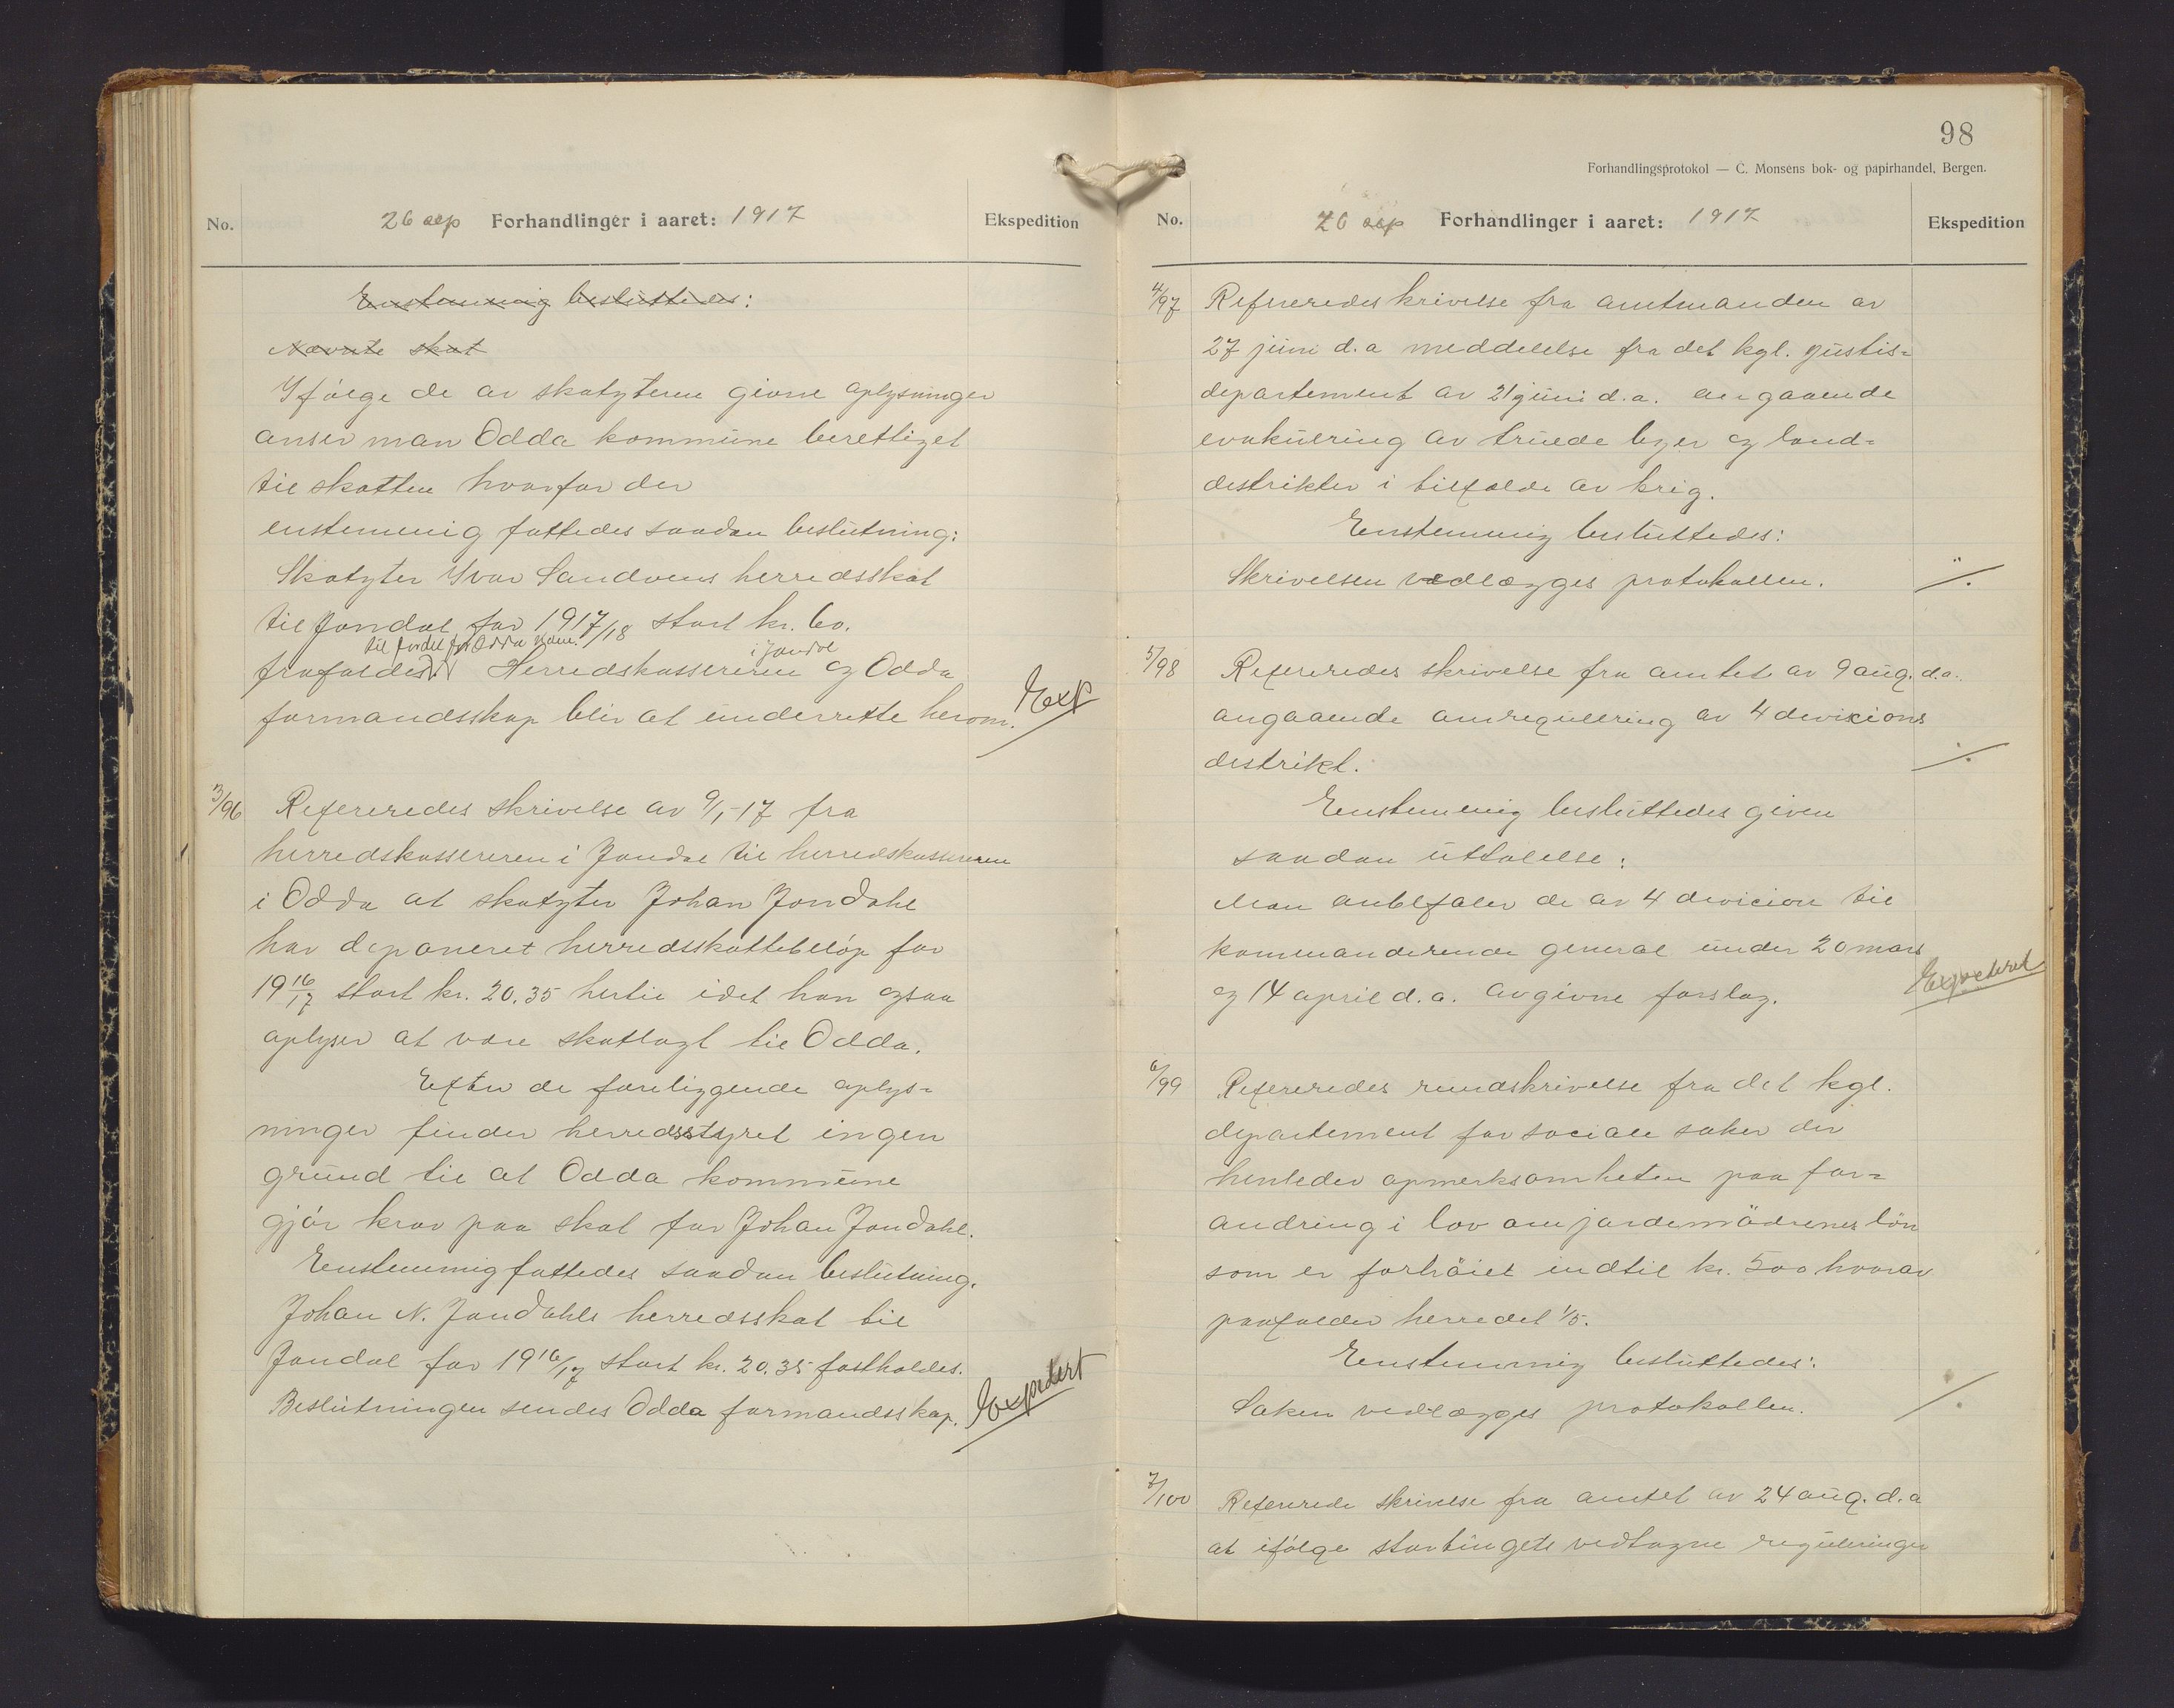 No.
26 sep Forhandlinger i aaret: 1917
Ekspedition
Enstemmig besluttedes:
Nævnte skat
Ifølge de av skatyteren givne oplysninger
anser man Odda kommune berettiget
til skatten hvorfor der
enstemmig fattedes saadan beslutning:
Skatyter Ivar Sandvens herredsskat
til Jondal for 1917/18 stort kr. 60.
til fordel for Odda kom. i Jondal
frafaldes. Herredskassereren og Odda
formandsskap blir at underrette herom.
Exp
3/96 Refereredes skrivelse av 9/1-17 fra
herredskassereren i Jondal til herredskassereren
i Odda at skatyter Johan Jondahl
har deponeret herredsskattebeløp for
19 16/17 stort kr. 20.35 hertil idet han ogsaa
oplyser at være skatlagt til Odda.
Efter de foreliggende oplys=
ninger finder herredsstyret ingen
grund til at Odda kommune
gjør krav paa skat for Johan Jondahl.
Enstemmig fattedes saadan beslutning.
Johan N. Jondahls herredsskat til
Jondal for 1916/17 stort kr. 20.35 fastholdes.
Beslutningen sendes Odda formandsskap.
Expedert
98
Forhandlingsprotokol — C. Monsens bok- og papirhandel, Bergen.
No.
26 sep Forhandlinger i aaret: 1917
Ekspedition
4/97 Refereredes krivelse fra amtmanden av
27 juni d.a meddelelse fra det kgl. justis=
departement av 21 juni d.a. angaaende
evakuering av truede byer og land=
destrikter i tilfælde av krig.
Enstemmig besluttedes:
Skrivelsen vedlægges protokollen.
5/98 Refereredes skrivelse fra amtet av 9 aug. d.a.
angaaende omregulering av 4 devisions
destrikt.
Enstemmig besluttedes given
saadan uttalelse:
Man anbefaler de av 4 devicion til
kommanderende general under 20 mars
og 14 april d.a. avgivne forslag.
Expederet
6/99 Refereredes rundskrivelse fra det kgl.
departement for sociale saker der
henleder opmerksomheten paa for=
andring i lov om jordemødrenes løn
som er forhøiet indtil kr. 500 hvorav
paafalder herredet 1/5.
Enstemmig besluttedes:
Saken vedlægges protokollen.
7/100 Refererede skrivelse fra amtet av 24 aug. d.a
at ifølge stortingets vedtagne reguleringer